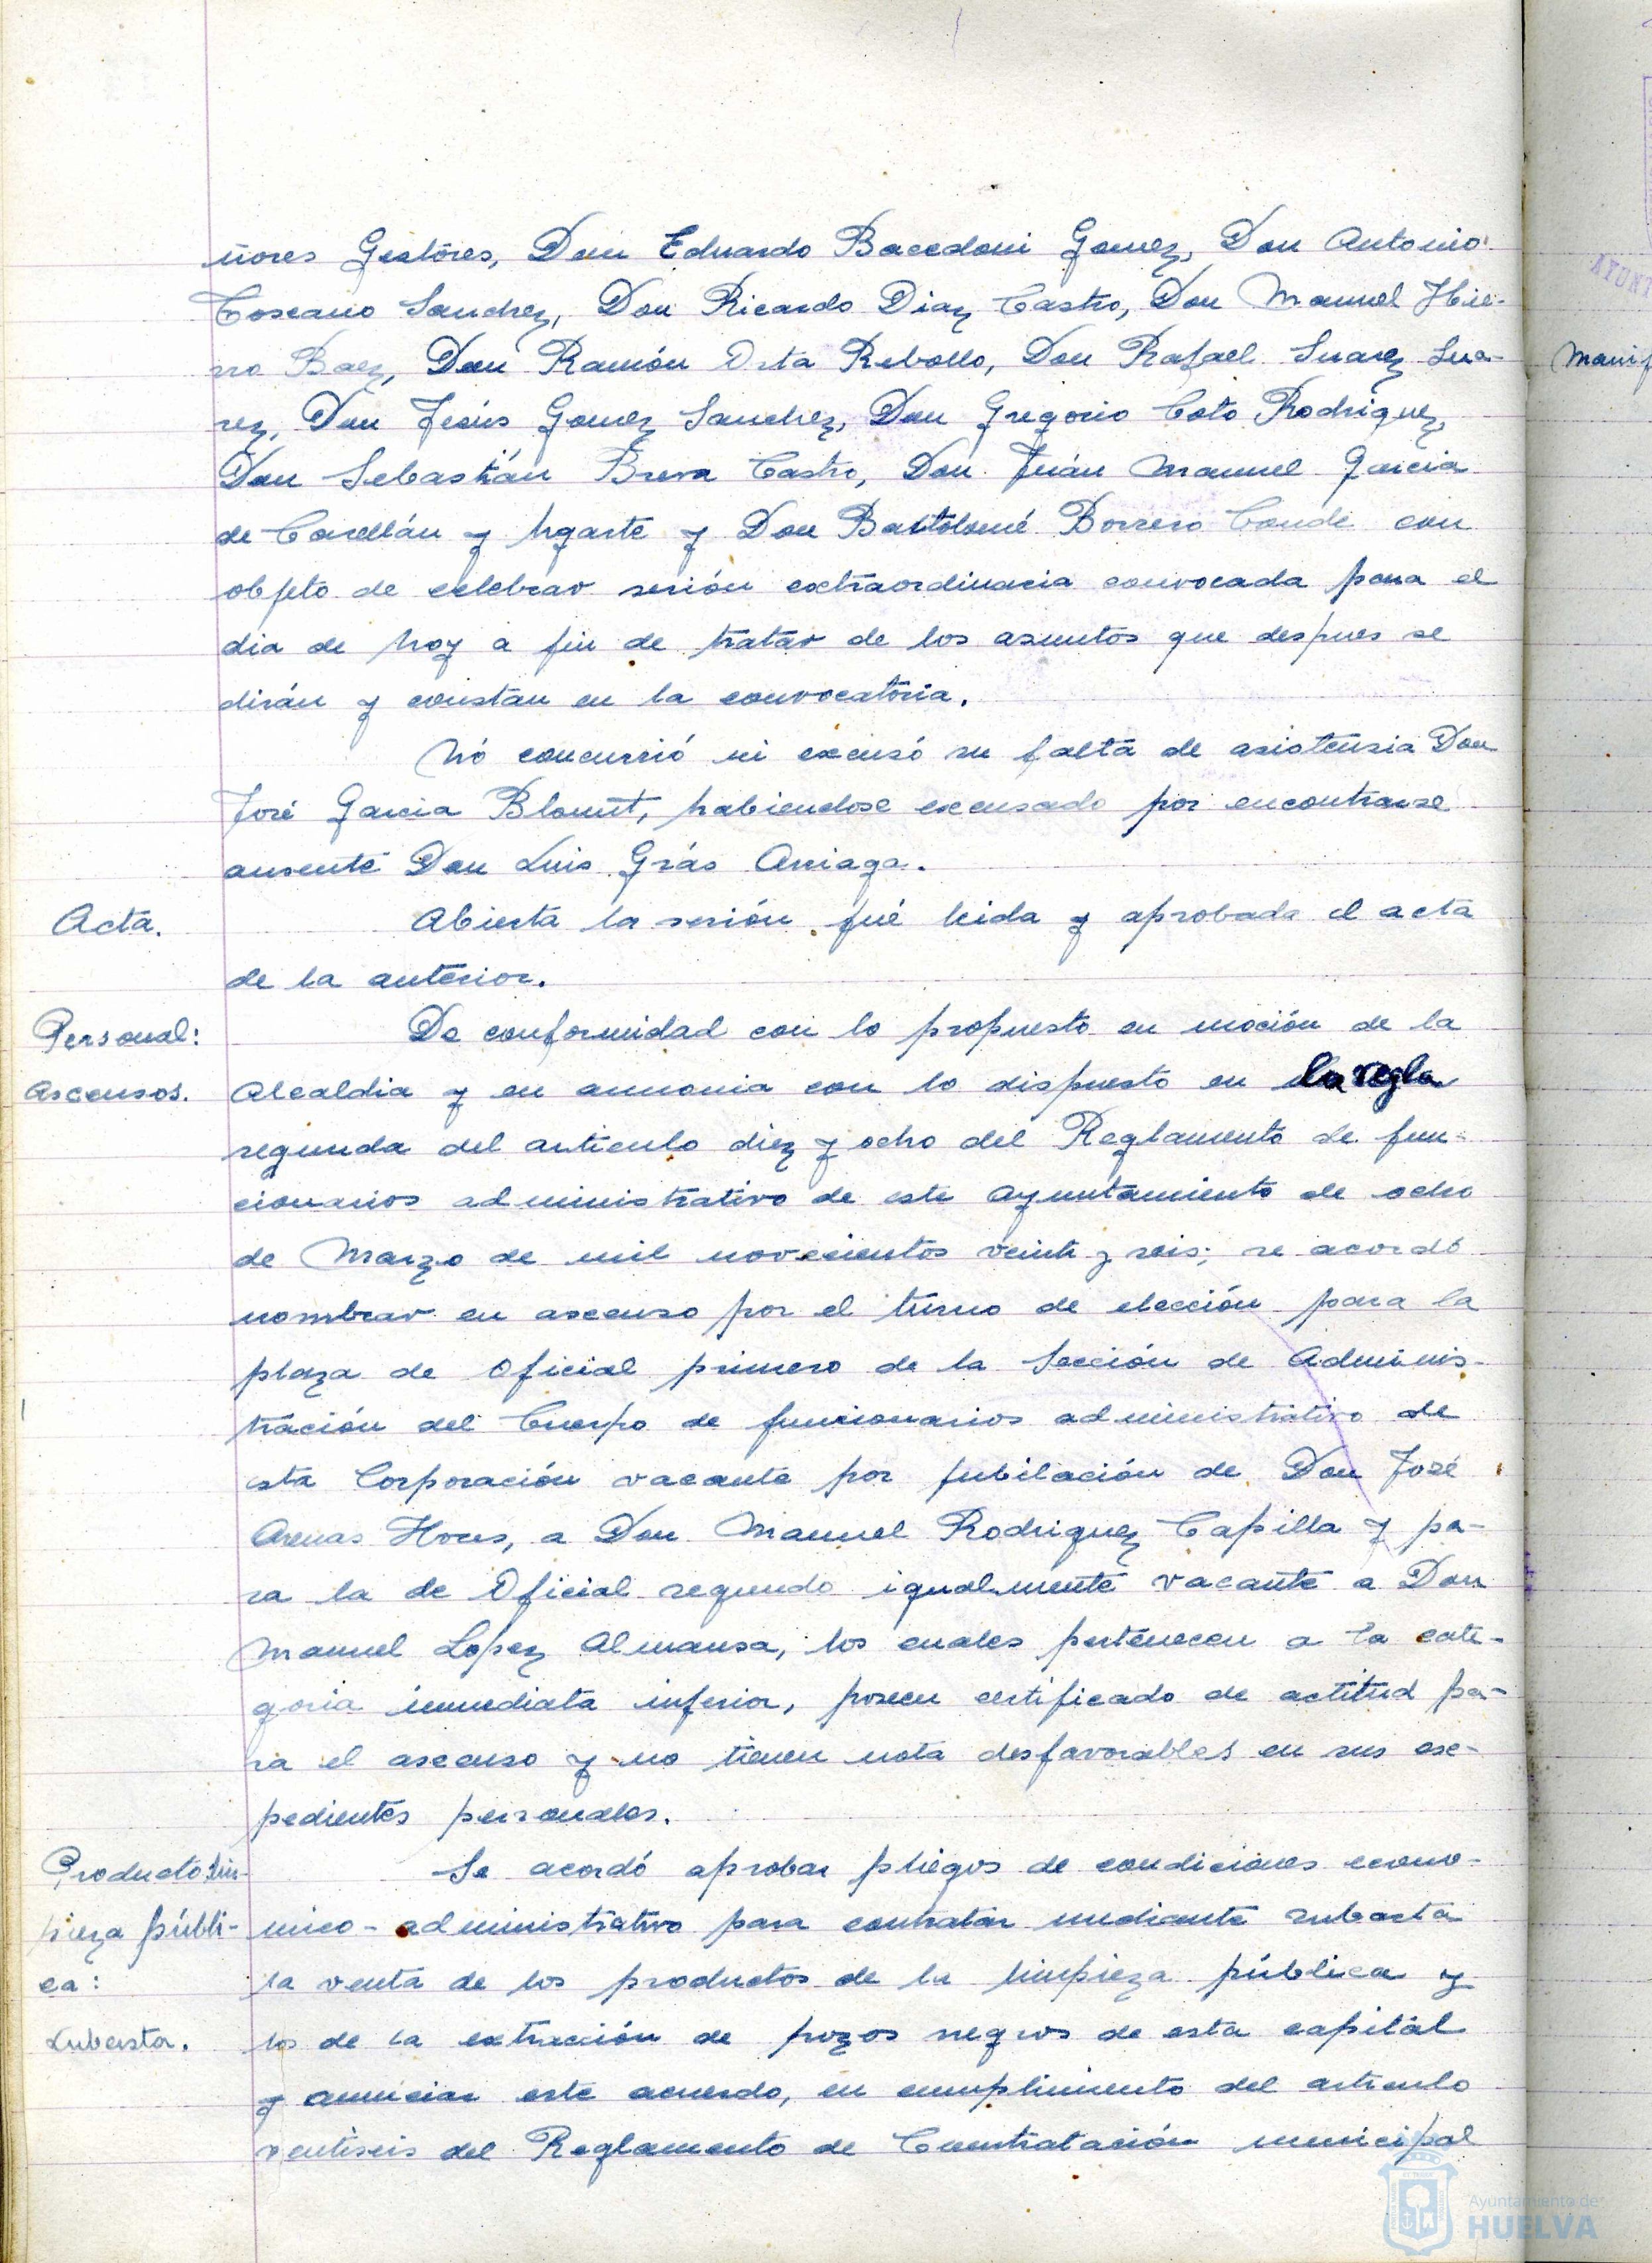 ñores Gestores, Don Eduardo Bacedoni Gomez, Don Antonio
Toscano Sanchez, Don Ricardo Diaz Castro, Don Manuel Hie-
rro Baez, Don Ramón Orta Rebollo, Don Rafael Suarez Sua-
rez, Don Jesús Gomez Sanchez, Don Gregorio Coto Rodriguez,
Don Sebastián Breva Castro, Don Juán Manuel Garcia
de Casellán y Ugarte y Don Bartolomé Borrero Conde con
objeto de celebrar sesión extraordinaria convocada para el
dia de hoy a fin de tratar de los asuntos que despues se
dirán y constan en la convocatoria.
Nó concurrió ni excusó su falta de asistensia Don
José Garcia Blount, habiendose excusado por encontrarse
ausente Don Luis Grás Arriaga.
Acta.
Abierta la sesión fué leida y aprobada el acta
de la anterior.
Personal:
Ascensos.
De conformidad con lo propuesto en moción de la
Alcaldia y en armonia con lo dispuesto en la regla
segunda del articulo diez y ocho del Reglamento de fun-
cionarios administrativo de este Ayuntamiento de ocho
de Marzo de mil novecientos veinte y seis; se acordó
nombrar en ascenso por el turno de elección para la
plaza de Oficial primero de la Sección de Adminis-
tración del Cuerpo de funcionarios administrativo de
esta Corporación vacante por jubilación de Don José
Arenas Flores, a Don Manuel Rodriguez Capilla y pa-
ra la de Oficial segundo igualmente vacante a Don
Manuel Lopez Almansa, los cuales pertenecen a la cate-
goria inmediata inferior, poseen certificado de actitud pa-
ra el ascenso y no tienen nota desfavorables en sus ex-
pedientes personales.
Producto lim-
pieza públi-
ca:
Subasta.
Se acordó aprobar pliegos de condiciones econo-
mico-administrativo para contratar mediante subasta
la venta de los productos de la limpieza pública y
los de la extracción de pozos negros de esta capital
y anunciar este acuerdo, en cumplimiento del articulo
ventiseis del Reglamento de Contratación municipal
Manif
AYUNT
Ayuntamiento de
HUELVA